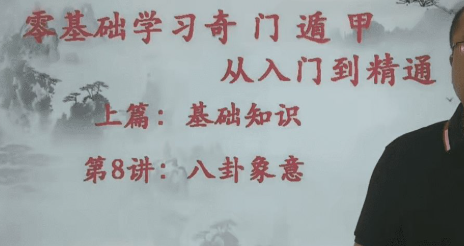 零基础学习奇门遁甲
从入门到精通
上篇：基础知识
第8讲：八卦象意